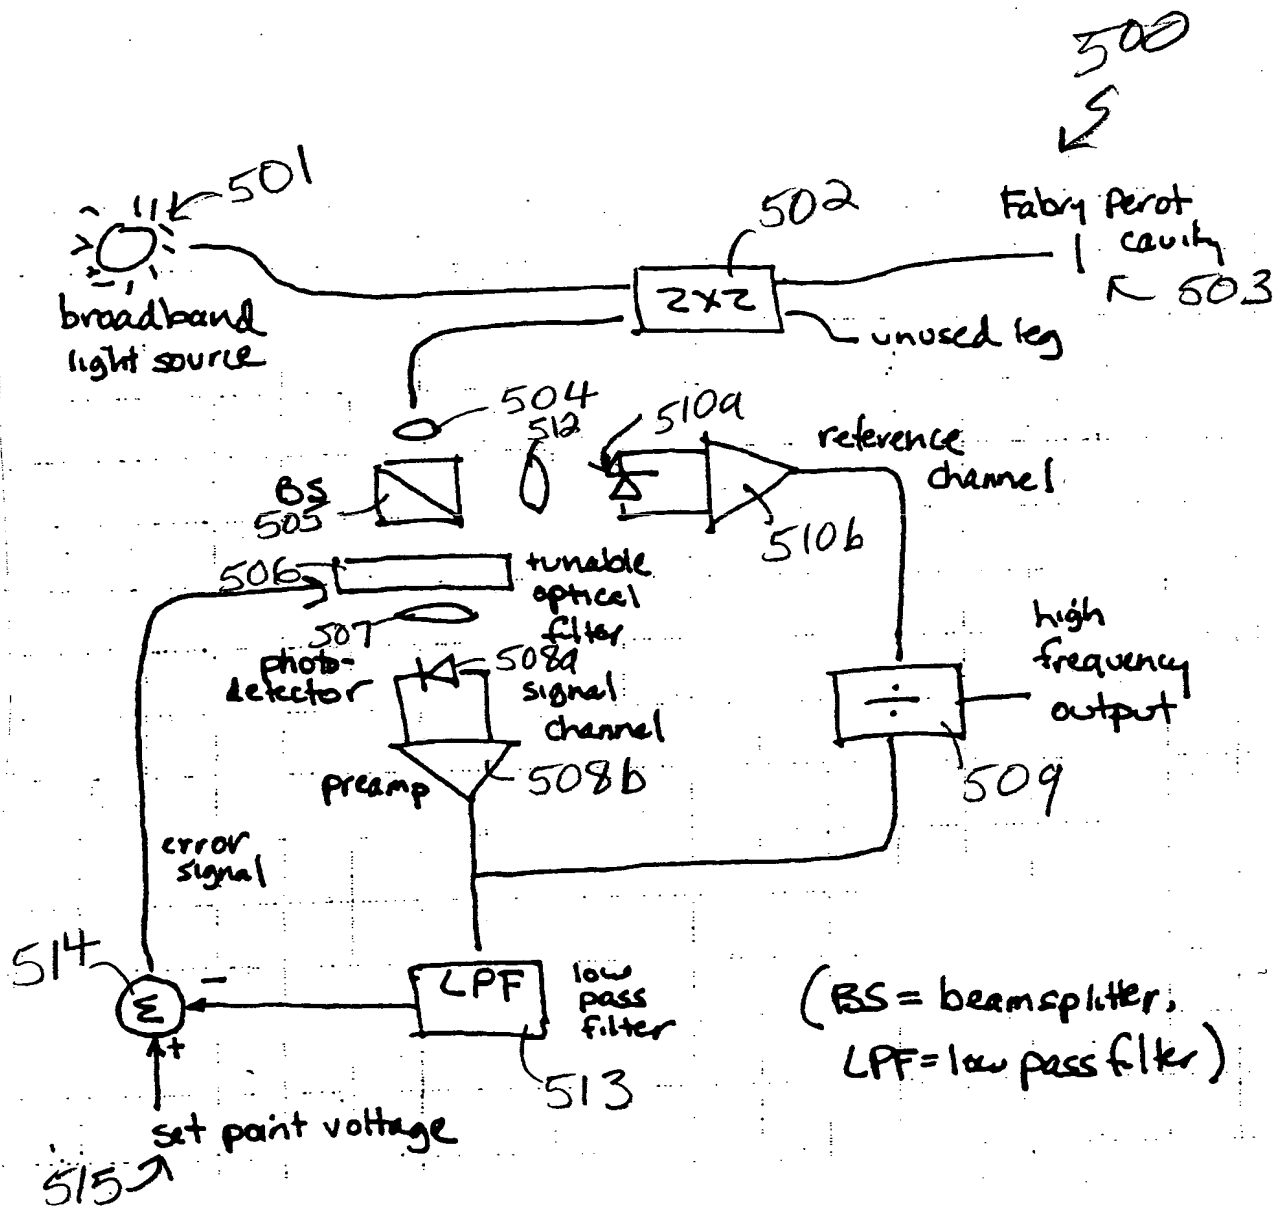 500
501
502
Fabry Perot
cavity
503
broadband
light source
2x2
unused leg
504
512
510a
reference
channel
BS
505
510b
506
tunable
optical
filter
507
photo-
detector
508a
signal
channel
high
frequency
output
÷
preamp
508b
509
error
signal
514
Σ
−
+
LPF
low
pass
filter
513
(BS = beamsplitter,
LPF = low pass filter)
set point voltage
515